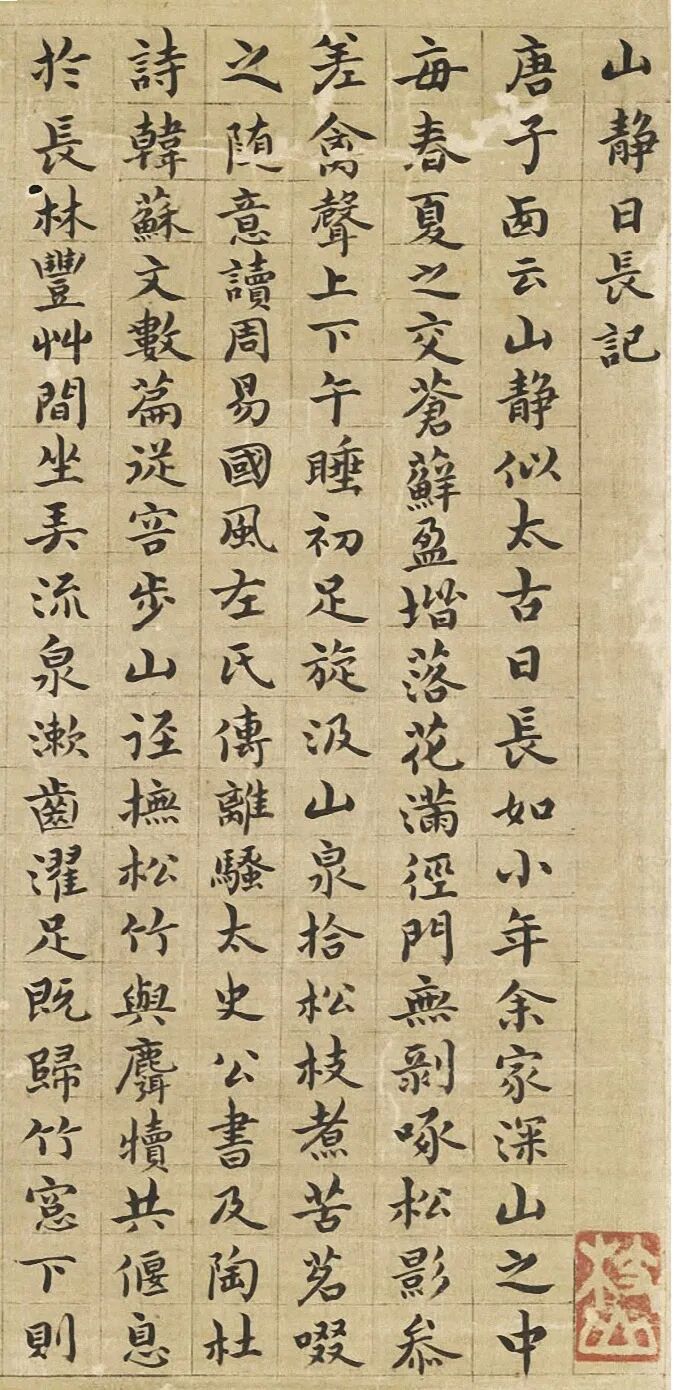 山静日長記
唐子西云山静似太古日長如小年余家深山之中
每春夏之交蒼蘚盈堦落花滿徑門無剝啄松影叅
差禽聲上下午睡初足旋汲山泉拾松枝煮苦茗啜
之随意讀周易國風左氏傳離騷太史公書及陶杜
詩韓蘇文數篇從容步山迳撫松竹與麛犢共偃息
於長林豐艸間坐弄流泉漱齒濯足既歸竹窻下則